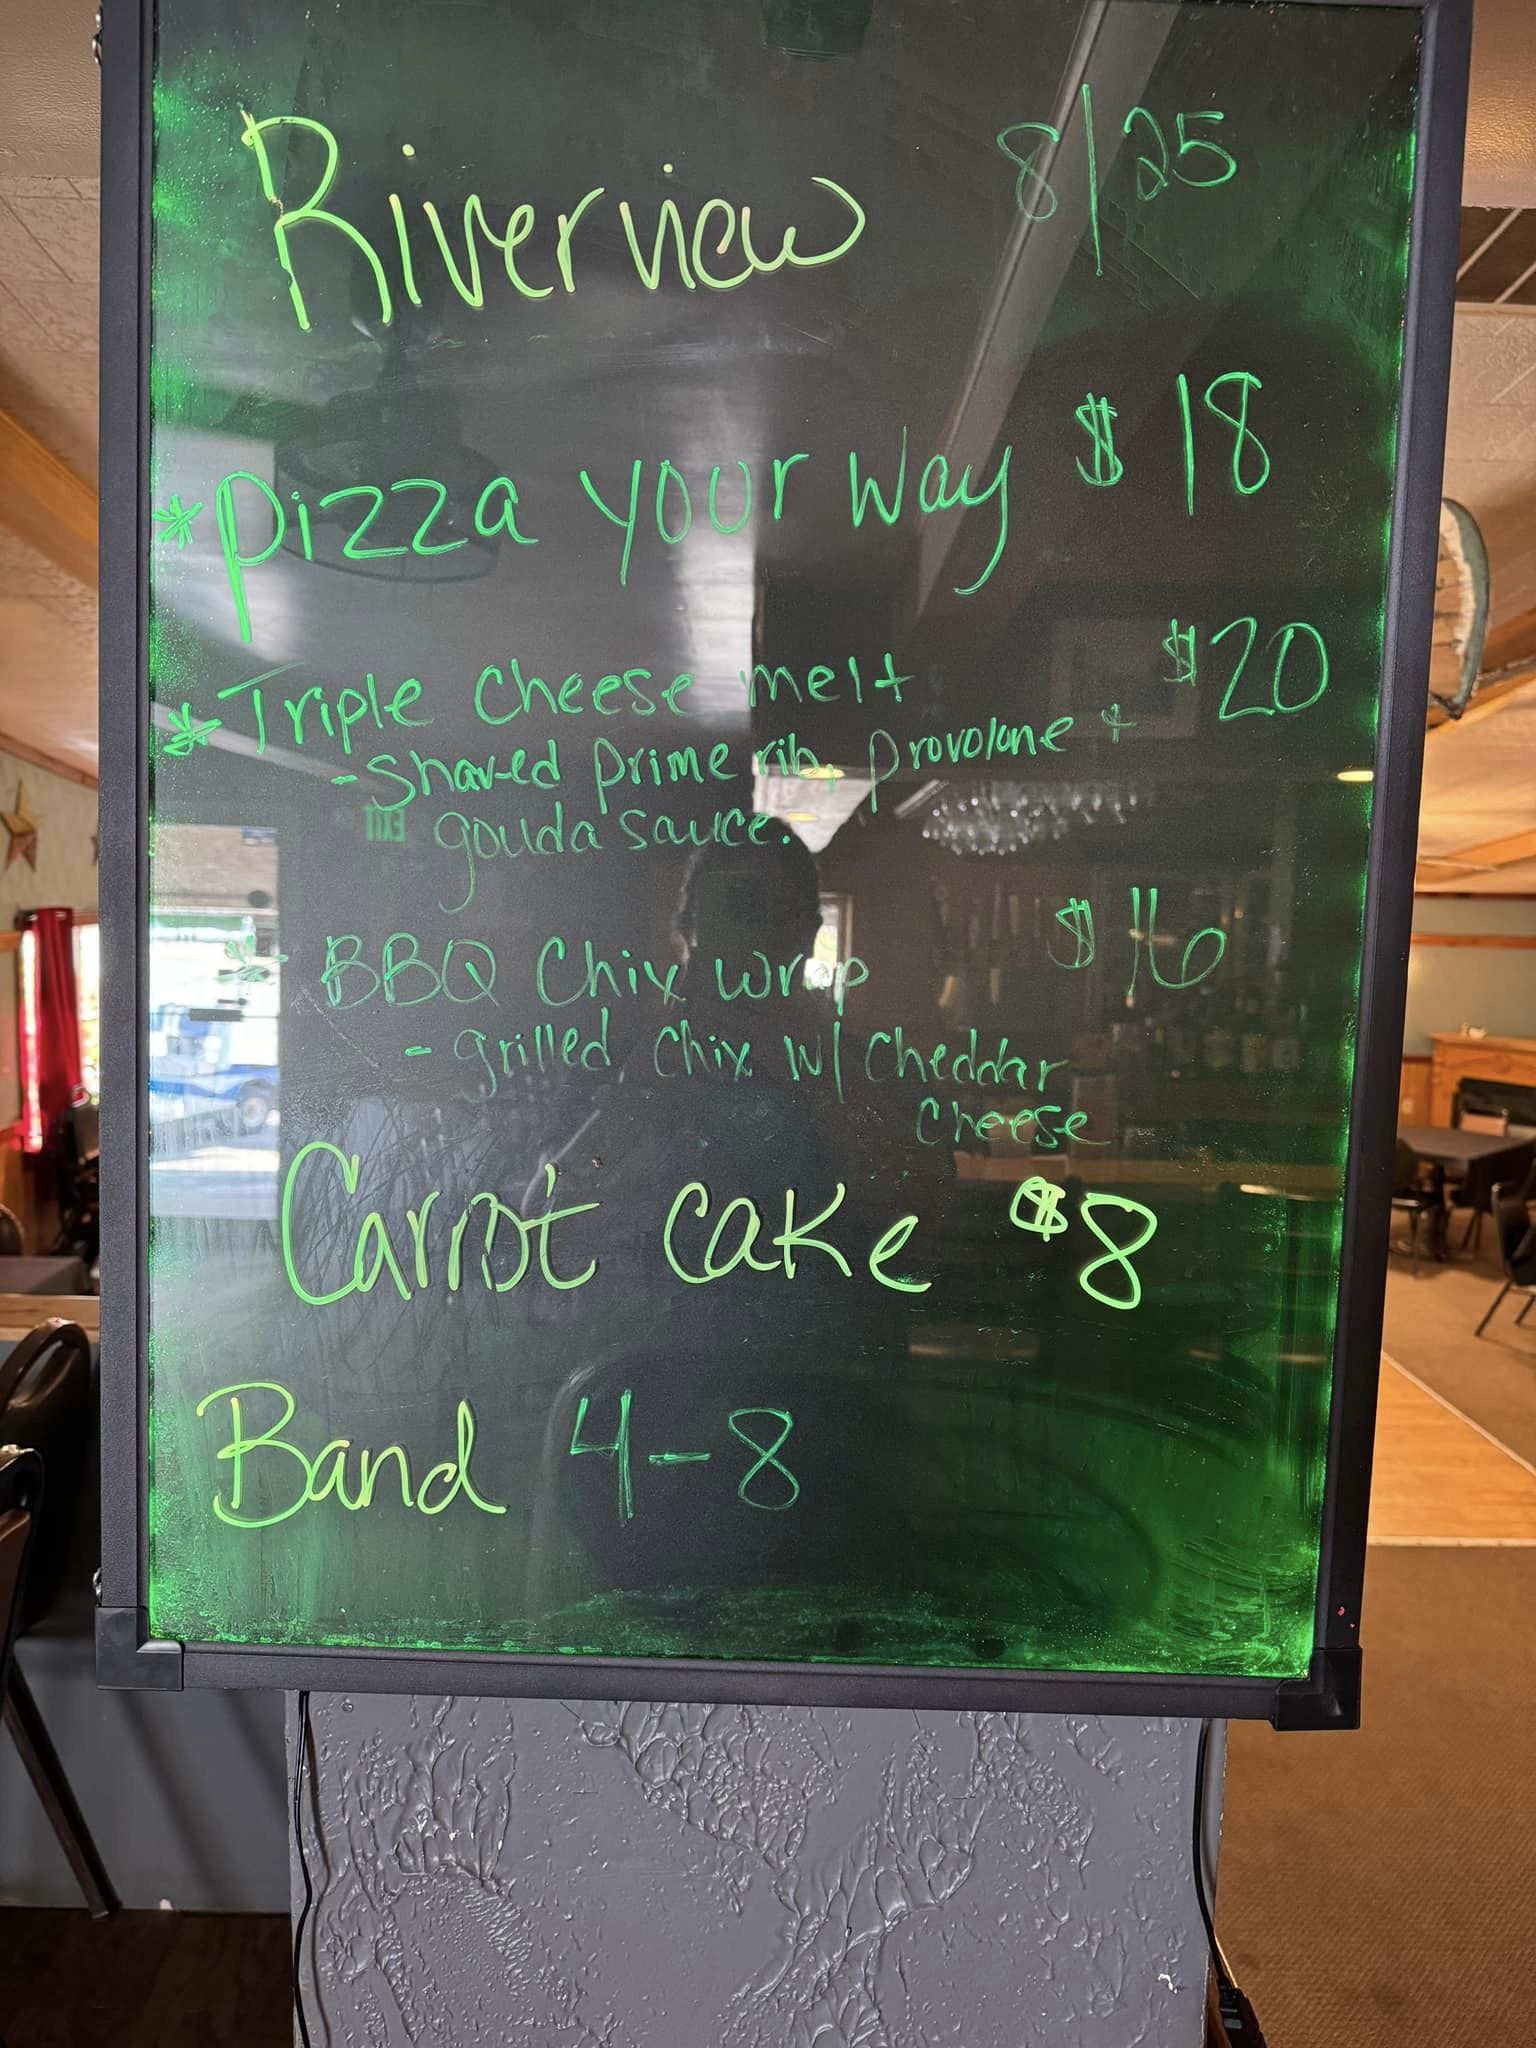 Riverview 8/25
* Pizza your way $18
* Triple cheese melt $20
- Shaved prime rib, provolone +
gouda sauce.
* BBQ Chix wrap $16
- grilled chix w/ cheddar
cheese
Carrot cake $8
Band 4-8
EXIT